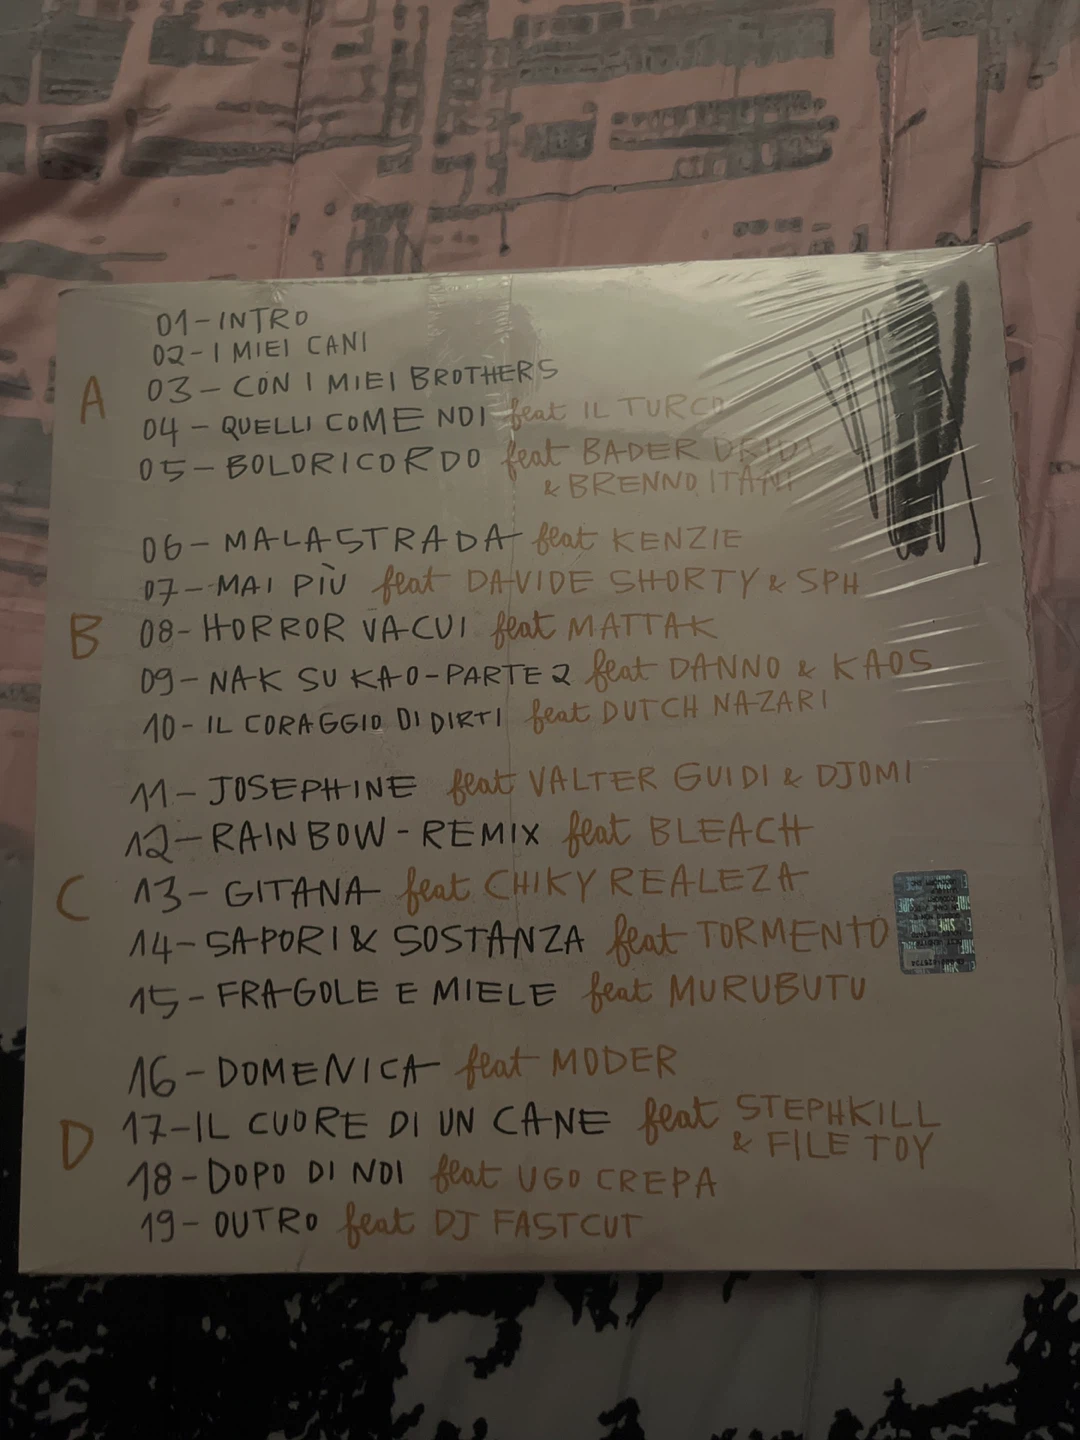 01-INTRO
02-I MIEI CANI
A
03-CON I MIEI BROTHERS
04-QUELLI COME NOI feat IL TURCO
05-BOLORICORDO feat BADER DRIDI
& BRENNO ITANI
06-MALASTRADA feat KENZIE
07-MAI PIÙ feat DAVIDE SHORTY & SPH
B
08-HORROR VACUI feat MATTAK
09-NAK SU KAO-PARTE 2 feat DANNO & KAOS
10-IL CORAGGIO DI DIRTI feat DUTCH NAZARI
11-JOSEPHINE feat VALTER GUIDI & DJOMI
12-RAINBOW-REMIX feat BLEACH
C
13-GITANA feat CHIKY REALEZA
14-SAPORI & SOSTANZA feat TORMENTO
15-FRAGOLE E MIELE feat MURUBUTU
16-DOMENICA feat MODER
17-IL CUORE DI UN CANE feat STEPHKILL
& FILE TOY
D
18-DOPO DI NOI feat UGO CREPA
19-OUTRO feat DJ FASTCUT